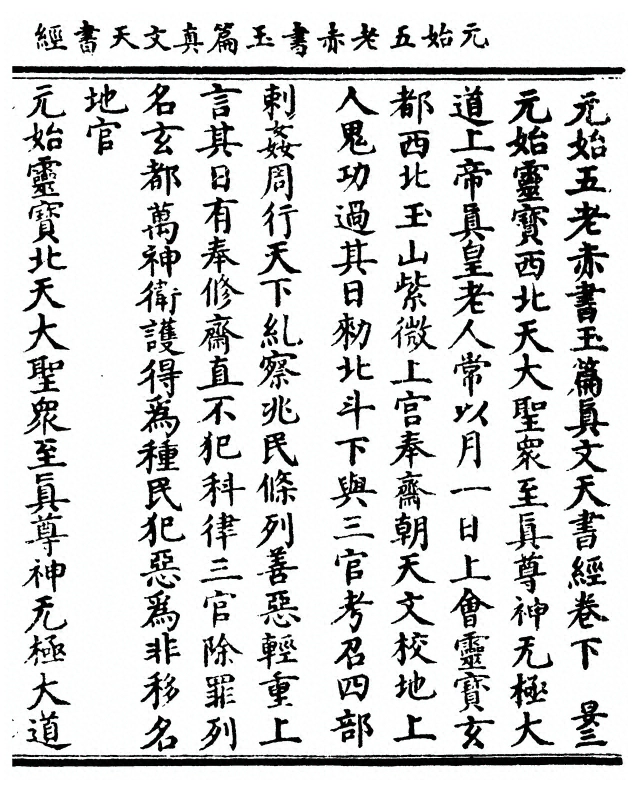 元始五老赤書玉篇真文天書經
元始五老赤書玉篇眞文天書經卷下 𣅿三
元始靈寶西北天大聖衆至眞尊神无極大
道上帝眞皇老人常以月一日上會靈寶玄
都西北玉山紫微上宮奉齋朝天文校地上
人鬼功過其日勑北斗下與三官考召四部
刺姦周行天下糺察兆民條列善惡輕重上
言其日有奉修齋直不犯科律三官除罪列
名玄都萬神衛護得爲種民犯惡爲非移名
地官
元始靈寶北天大聖衆至眞尊神无極大道